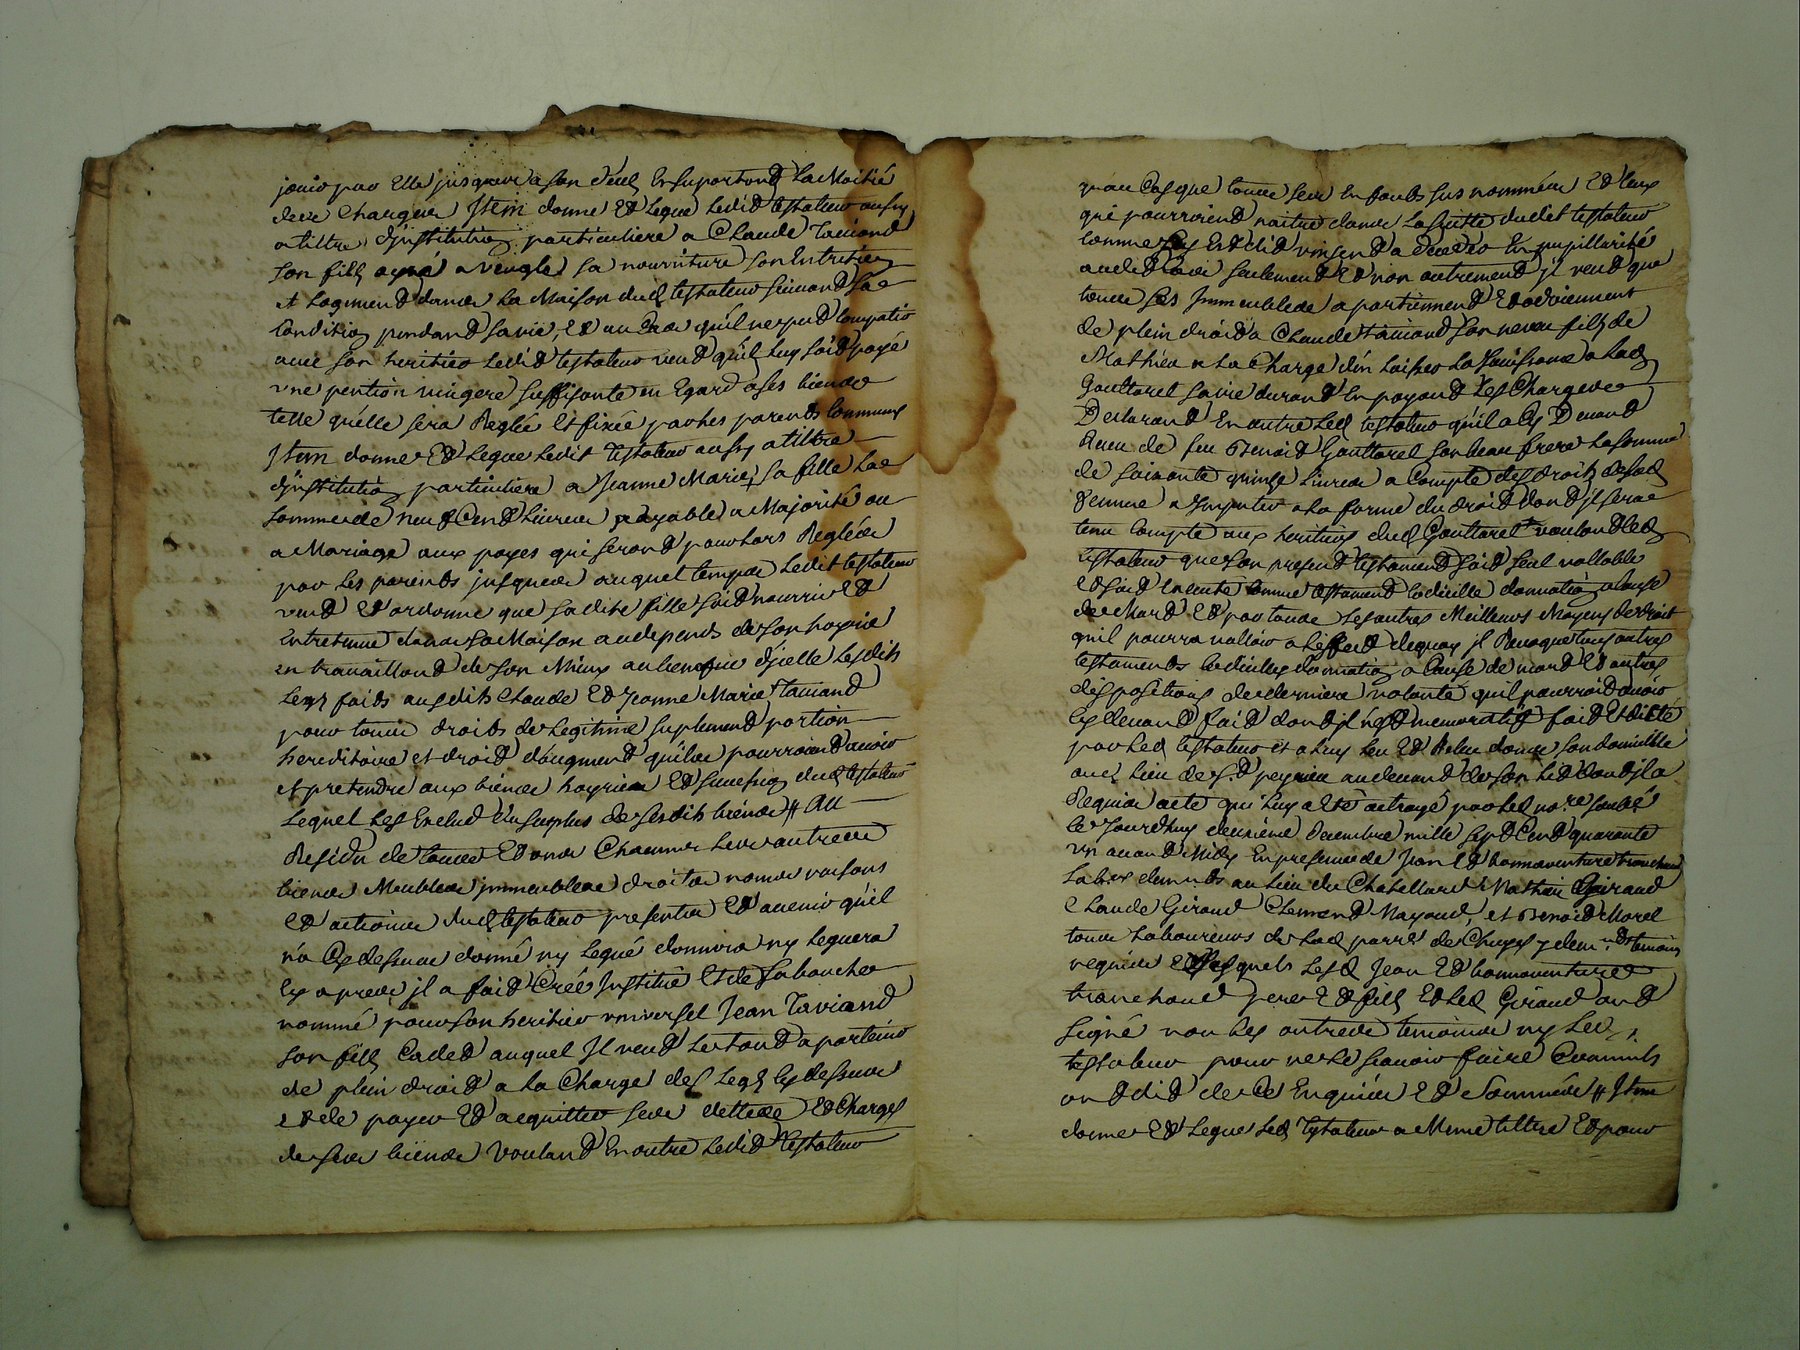 jouir par Elle jusques a son deces En suportand La Moitié
des charges Jtem donne Et Legue Ledit testateur aussy
a tiltre d'jnstitution particuliere a Claude taviand
son fils ayné aveugle sa nourriture son Entretien
et Logement dans La Maison dud testateur suivand sa
Condition pendand sa vie, Et au Cas qu'il ne peud Compatir
avec son heritier Ledit testateur veud qu'il luy soid payé
vne pention viagere suffisante en Egard a ses biends
telle qu'elle sera Reglée Et fixée par les parends Communs
Jtem donne Et Legue Ledit testateur aussy a tiltre
d'jnstitution particuliere a Jeanne Marie sa fille La
somme de neuf Cend Livres payable a Majorité ou
a Mariage aux payes qui serond pour Lors Reglées
par Les parends jusques auquel temps Ledit testateur
veud Et ordonne que sa dite fille soid nourrie Et
Entretenue dans sa Maison au depends de son hoyrie
en travailland de son Mieux au benefice d'jcelle Lesdits
Legs faits ausdits Claude Et Jeanne Marie taviand
pour tous droits de Legitime suplement portion
hereditaire et droid d'augmend qu'ils pourroiend avoir
et pretendre aux biends hoyrie Et succession dud testateur
Lequel Les Exclud du surplus de sesdits biends // Au
Residu de tous Et vns Chacuns Leurs autres
biends Meubles jmmeubles droits noms raisons
Et actions dud testateur presents Et avenir qu'il
n'a Cy dessus donné ny Legué donnera ny Leguera
Cy apres il a faid Créé Jnstitué Et de sa bouche
nommé pour son heritier vniversel Jean Taviand
son fils Cadet auquel Jl veud Le tout apartenir
de plein droid a La Charge des Legs Cy dessus
et de payer Et acquitter ses dettes Et Charges
de ses biends Vouland En outre Ledit testateur
qu'au Cas que tous ses Enfants sus nommés Et Ceux
qui pourroiend naitre dans La suitte dudit testateur
Comme Cy Est dit vinsend a deceder En pupillarité
audit Cas seulement Et non autrement jl veud que
tous ses Jmmeubles apartiennend Et adviennent
de plein droid a Claude taviand son neveu fils de
Mathieu a La Charge d'en Laisser La Jouissance a Lad
Gouttaret sa vie durand En payand Les Charges
Declarand En outre Led testateur qu'il a Cy Devand
Receu de feu Benoid Gouttaret son beau frere La somme
de soixante quinze Livres a Compte des droits de Lad
femme a Jmputer a la forme du droid dond jl sera
tenu Compte aux heritiers dud Gouttaret voulandled
testateur que son presend testamend soid seul vallable
Et soid Execute Comme testamend Codicille donnation a Cause
de Mord Et par tous Les autres Meilleurs Moyens de droit
qu'il pourra valloir a L'effect dequoy jl Revoque tous autres
testaments Codicilles donnation a Cause de mord Et autres
dispositions de derniere volonté qu'il pourroid avoir
Cy devand faid dond jl n'est memoratif faid Et dicté
par Led testateur et a Luy Leu Et Releu dans son domicille
aud Lieu de s.d peyrieu au devand de son Lid dond jl a
Requis acte qui Luy a Eté octroyé par Led no.re soussé
Ce Jourdhuy deuxieme decembre mille sept Cend quarante
vn avand Midy En presence de Jean Et bonnaventure tranchand
Labrs demts au Lieu du Chatellard Mathieu Giraud
Claude Giraud Clemend Mayoud, et Benoid Morel
tous Laboureurs de Lad parre de Chuyes y demts temoins
requis Et Lesquels Led Jean Et bonnaventure
tranchand pere Et fils Et Led Giraud ond
signé non Les autres temoins ny Led
testateur pour ne Le scavoir faire Comm'ils
ond dit de Ce Enquis Et Sommés // Jtem
donne Et Legue Led testateur a Meme tiltre Et pour